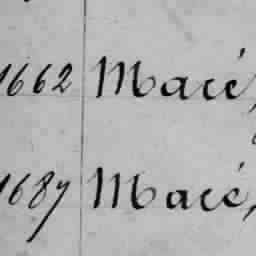 1662 Macé,
1687 Macé,